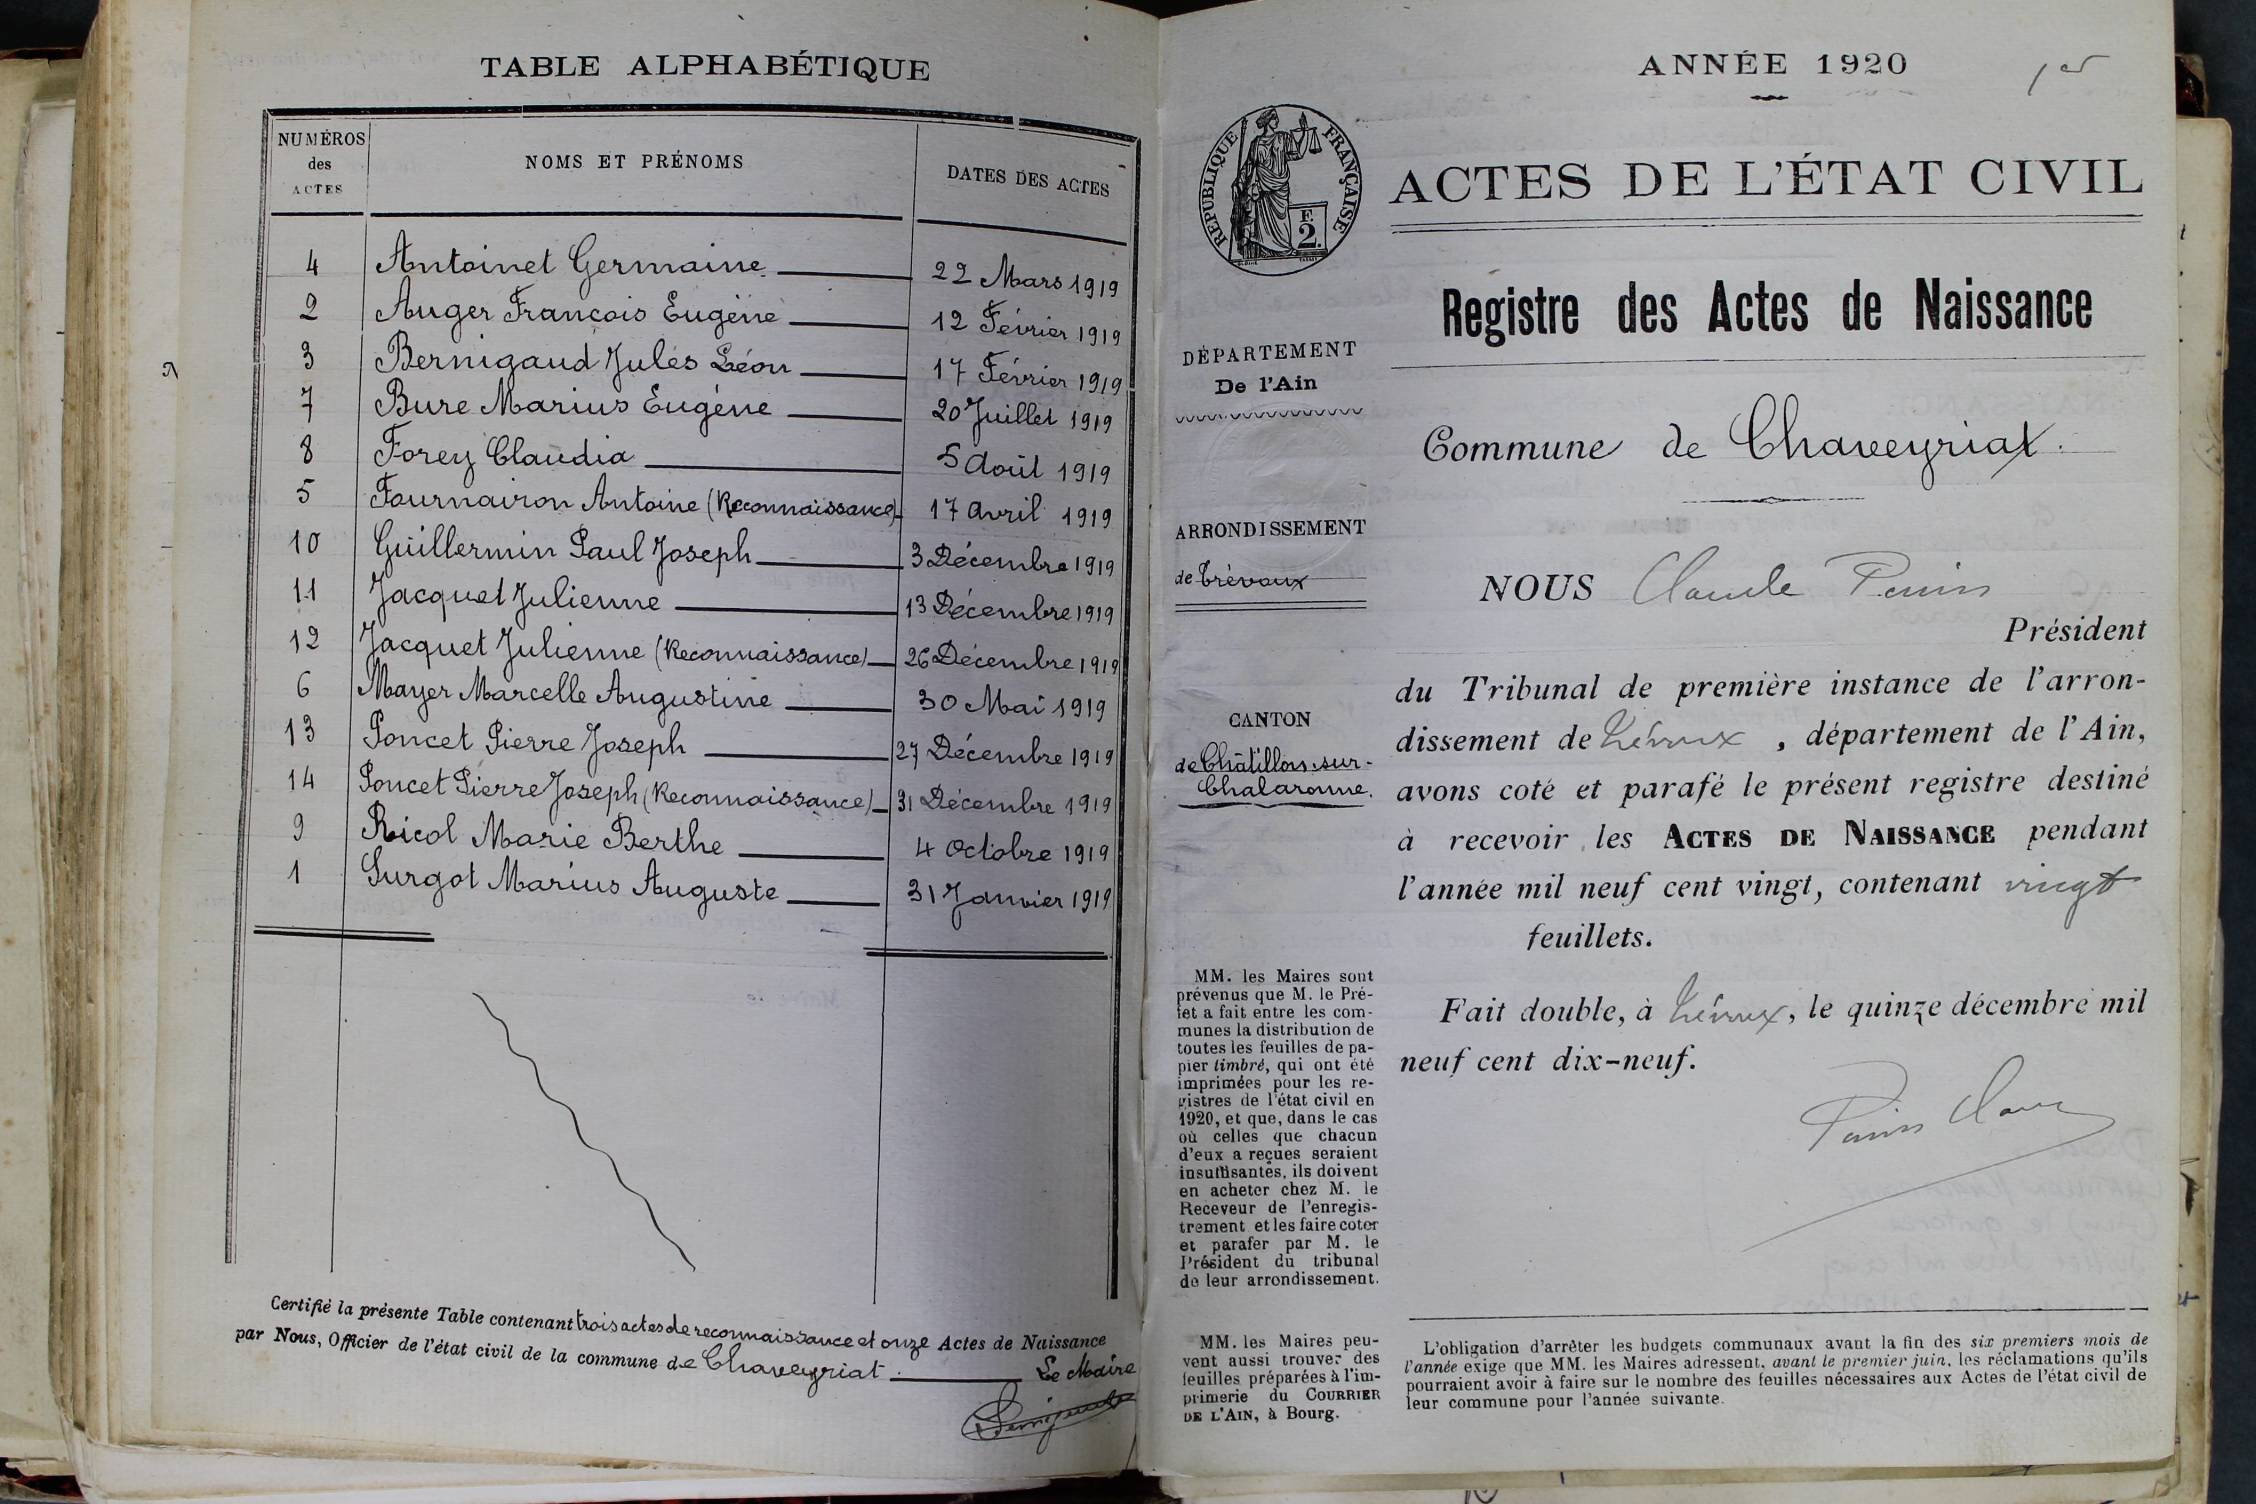 TABLE ALPHABÉTIQUE
NUMÉROS des ACTES
NOMS ET PRÉNOMS
DATES DES ACTES
4 Antoinet Germaine 22 Mars 1919
2 Auger François Eugène 12 Février 1919
3 Bernigaud Jules Léon 17 Février 1919
7 Bure Marius Eugène 20 Juillet 1919
8 Forey Claudia 5 Août 1919
5 Fournairon Antoine (Reconnaissance) 17 Avril 1919
10 Guillermin Paul Joseph 3 Décembre 1919
11 Jacquet Julienne 13 Décembre 1919
12 Jacquet Julienne (Reconnaissance) 26 Décembre 1919
6 Mayer Marcelle Augustine 30 Mai 1919
13 Poncet Pierre Joseph 27 Décembre 1919
14 Poncet Pierre Joseph (Reconnaissance) 31 Décembre 1919
9 Ricol Marie Berthe 4 Octobre 1919
1 Surgot Marius Auguste 31 Janvier 1919
Certifié la présente Table contenant trois actes de reconnaissance et onze Actes de Naissance
par Nous, Officier de l'état civil de la commune de Chaveyriat. Le Maire
ANNÉE 1920
1er
RÉPUBLIQUE FRANÇAISE
F.
2.
ACTES DE L'ÉTAT CIVIL
Registre des Actes de Naissance
DÉPARTEMENT
De l'Ain
Commune de Chaveyriat.
ARRONDISSEMENT
de Trévoux
CANTON
de Châtillon-sur-
Chalaronne.
NOUS Claude
Président
du Tribunal de première instance de l'arron-
dissement de Trévoux, département de l'Ain,
avons coté et parafé le présent registre destiné
à recevoir les ACTES DE NAISSANCE pendant
l'année mil neuf cent vingt, contenant vingt
feuillets.
Fait double, à Trévoux, le quinze décembre mil
neuf cent dix-neuf.
MM. les Maires sont
prévenus que M. le Pré-
fet a fait entre les com-
munes la distribution de
toutes les feuilles de pa-
pier timbré, qui ont été
imprimées pour les re-
gistres de l'état civil en
1920, et que, dans le cas
où celles que chacun
d'eux a reçues seraient
insuffisantes, ils doivent
en acheter chez M. le
Receveur de l'enregis-
trement et les faire coter
et parafer par M. le
Président du tribunal
de leur arrondissement.
MM. les Maires peu-
vent aussi trouver des
feuilles préparées à l'im-
primerie du COURRIER
DE L'AIN, à Bourg.
L'obligation d'arrêter les budgets communaux avant la fin des six premiers mois de
l'année exige que MM. les Maires adressent, avant le premier juin, les réclamations qu'ils
pourraient avoir à faire sur le nombre des feuilles nécessaires aux Actes de l'état civil de
leur commune pour l'année suivante.